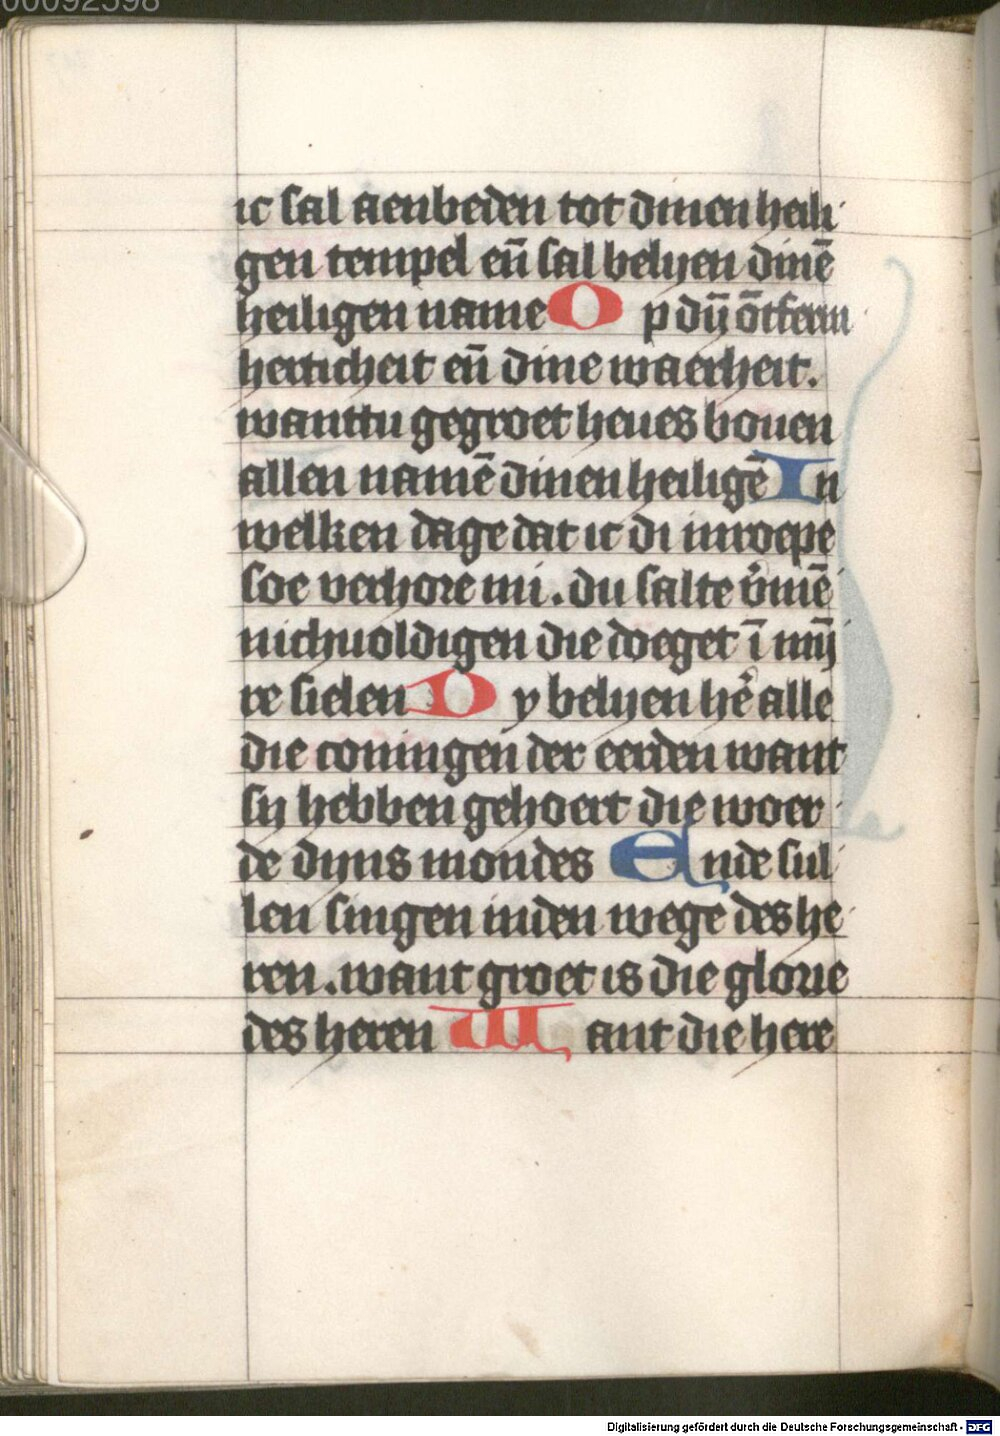 00092598
ic sal aenbeden tot dinen heili
gen tempel en̄ sal belyen dinē
heiligen name Op dij ōtferm
herticheit en̄ dine waerheit.
wanttu gegroet heues bouen
allen namē dinen heiligē In
welken dage dat ic di inroepe
soe verhore mi. du salte v̓mē
nichuoldigen die doeget ī mij
re sielen Dy belyen hē alle
die coningen der eerden want
sij hebben gehoert die woer
de dijns mondes Ende sul
len singen inden wege des he
ren. want groet is die glorie
des heren Want die here
Digitalisierung gefördert durch die Deutsche Forschungsgemeinschaft - DFG